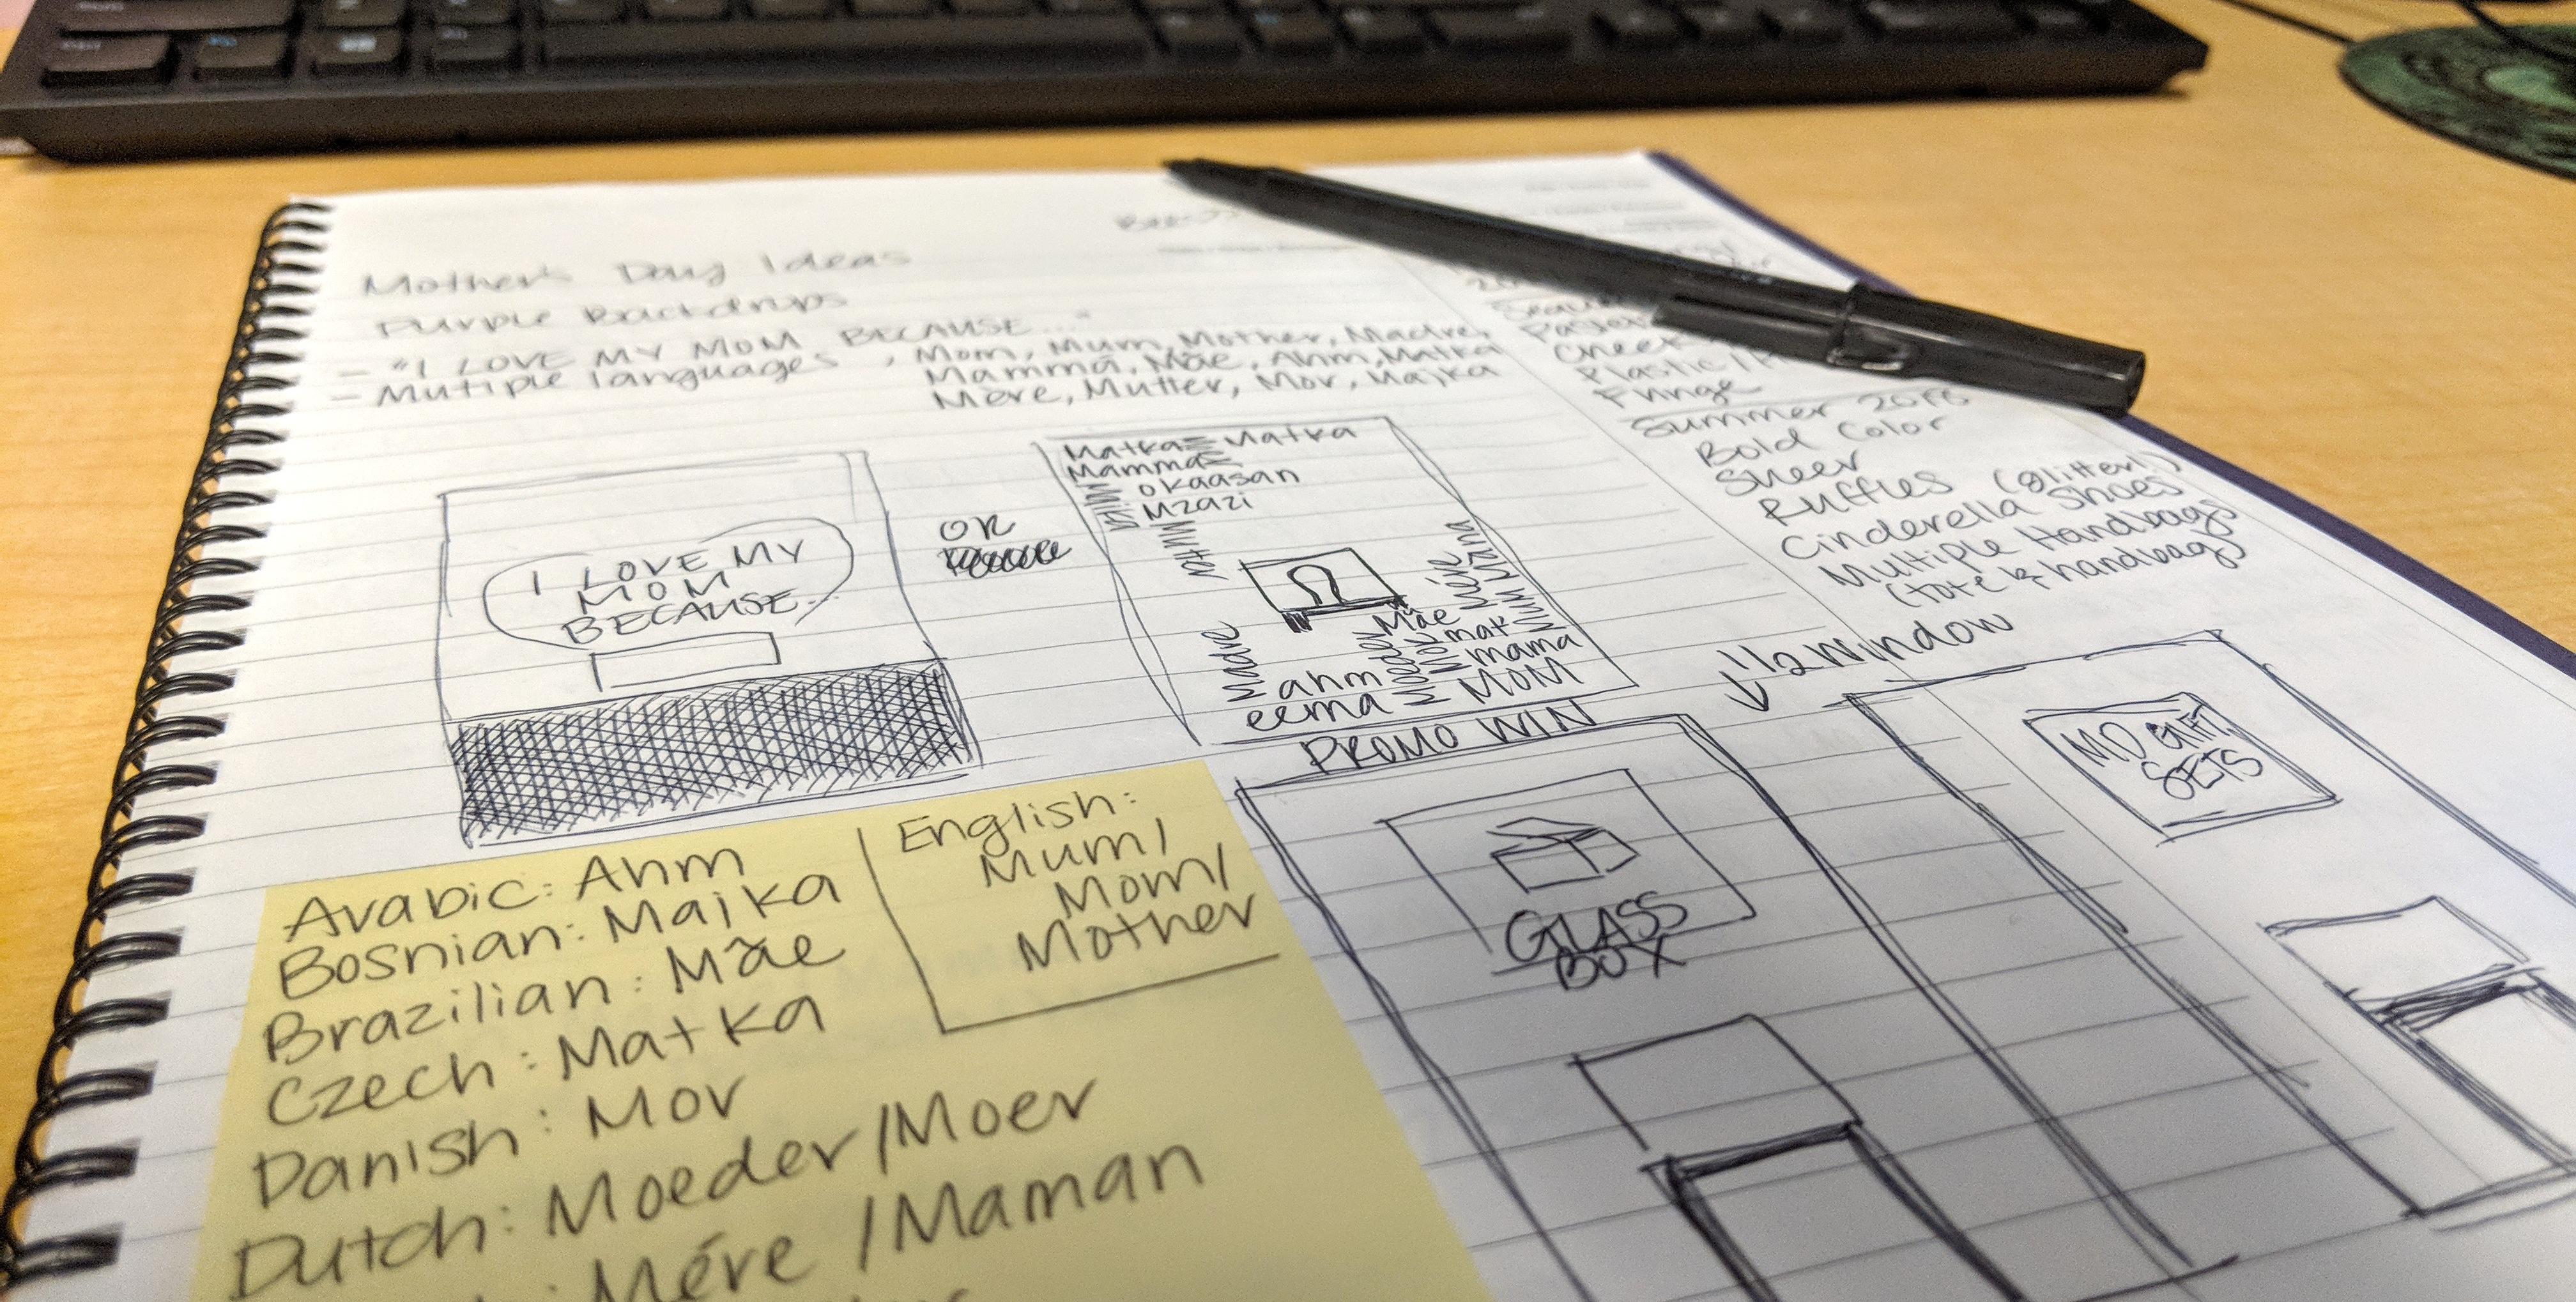 Mother's Day Ideas
Purple Backdrops
- "I LOVE MY MOM BECAUSE..."
- Mutiple languages , Mom, Mum, Mother, Madre,
Mamma, Mãe, Ahm, Matka
Mère, Mutter, Mor, Majka
I LOVE MY
MOM
BECAUSE...
OR
Matka Matka
Mamma
okaasan
Mzazi
Mutter
Madre
Mãe
mat
mama
MOM
ahm
eema
Moeder
Mor
Mère
Mum
PROMO WIN
GLASS
BOX
1/2 Window
MD GIFT
SETS
Plastic/
Fringe
Summer
Bold Color
Sheer
Ruffles (glitter!)
Cinderella Shoes
Multiple Handbags
(tote & handbag)
Arabic: Ahm
Bosnian: Majka
Brazilian: Mãe
Czech: Matka
Danish: Mor
Dutch: Moeder/Moer
: Mére /Maman
English:
Mum/
Mom/
Mother